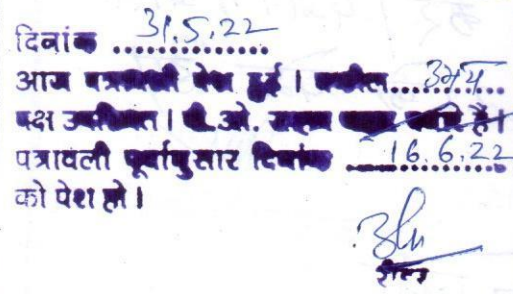 दिनांक 31.5.22
आज पत्रावली पेश हुई । वकील....उभय
पक्ष उपस्थित । पी.ओ. हैं।
पत्रावली पूर्वानुसार दिनांक 16.6.22
को पेश हो ।
रीडर